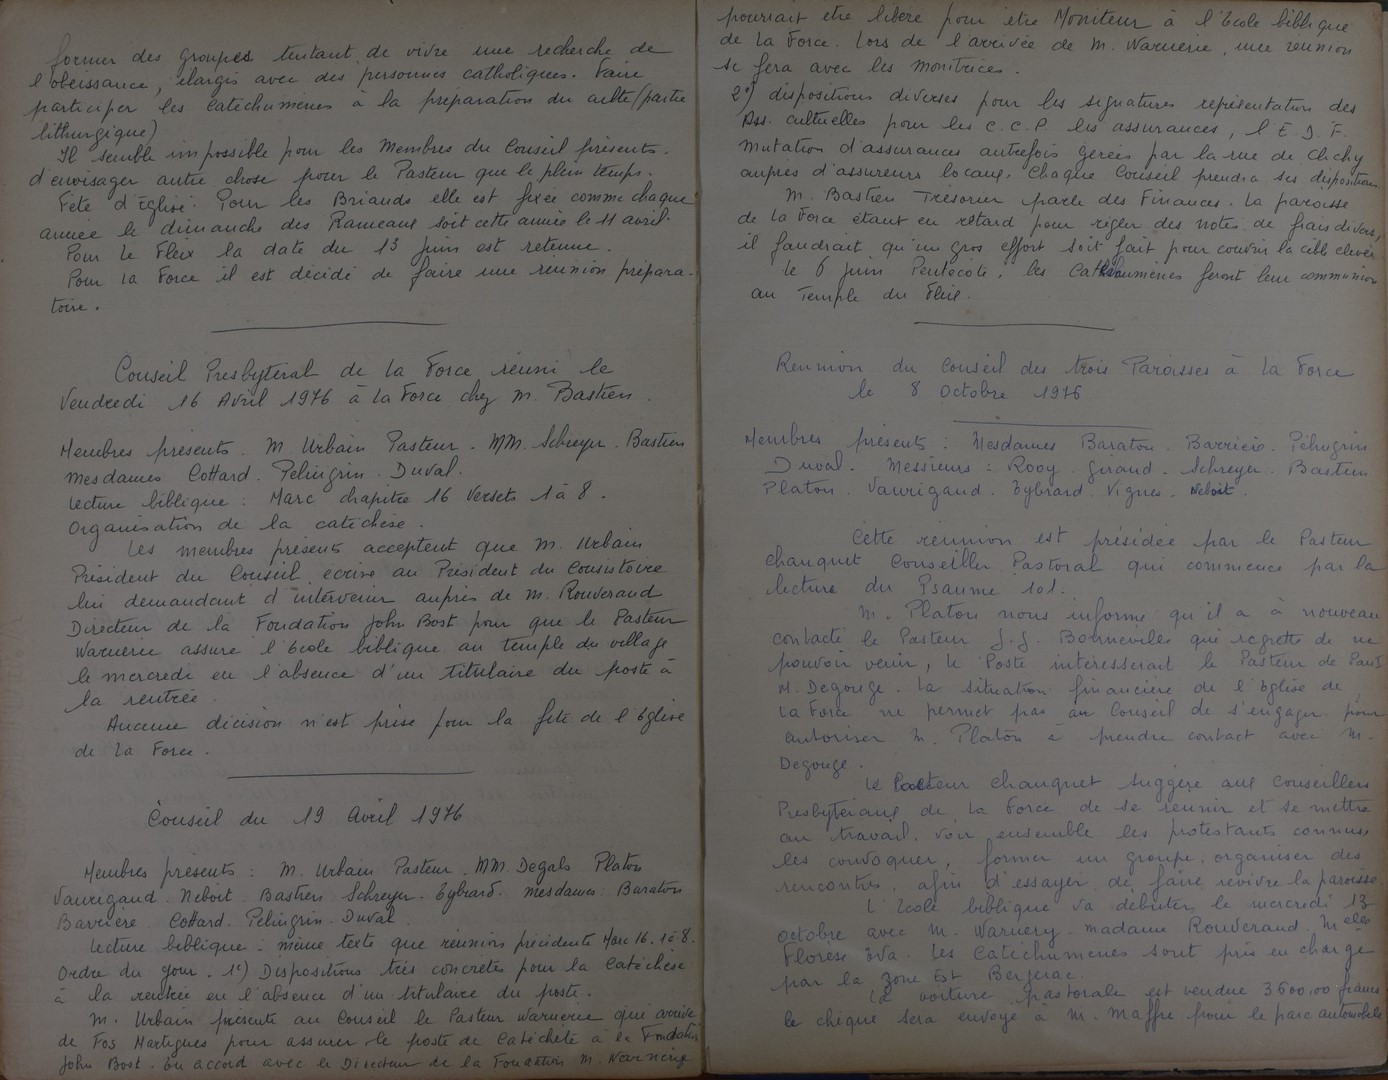 former des groupes tentant de vivre une recherche de
l'obeissance, élargis avec des personnes catholiques. Faire
participer les catéchumènes à la préparation du culte (partie
lithurgique)
Il semble impossible pour les Membres du Conseil présents.
d'envisager autre chose pour le Pasteur que le plein temps.
Fête d'Eglise: Pour les Briands elle est fixée comme chaque
année le dimanche des Rameaux soit cette année le 11 avril.
Pour le Fleix la date du 13 juin est retenue.
Pour La Force il est décidé de faire une réunion prépara-
toire.
Conseil Presbytéral de La Force réuni le
Vendredi 16 Avril 1976 à La Force chez M. Bastien.
Membres présents. M. Urbain Pasteur. MM. Schreyer. Bastien
Mesdames Cottard. Pelingrin. Duval.
Lecture biblique: Marc chapitre 16 Versets 1 à 8.
Organisation de la catéchèse.
Les membres présents acceptent que M. Urbain
Président du Conseil, écrive au Président du Consistoire
lui demandant d'intervenir auprès de M. Rouverand
Directeur de la Fondation John Bost pour que le Pasteur
Warnerie assure l'Ecole biblique au temple du village
le mercredi en l'absence d'un titulaire du poste à
la rentrée.
Aucune décision n'est prise pour la fête de l'Eglise
de La Force.
Conseil du 19 Avril 1976
Membres présents: M. Urbain Pasteur. MM. Degals Platon
Vaurigaud. Neboit. Bastien Schreyer. Eybrard. Mesdames: Baraton
Barrière Cottard. Pelingrin. Duval.
Lecture biblique: même texte que réunion précédente Marc 16. 1à8.
Ordre du jour. 1°) Dispositions très concrètes pour la Catéchèse
à la rentrée en l'absence d'un titulaire du poste.
M. Urbain présente au Conseil le Pasteur Warnerie qui arrive
de Fos Martigues pour assurer le poste de Catéchète à la Fondation
John Bost. En accord avec le Directeur de la Fondation M. Warnerie
pourrait être libéré pour être Moniteur à l'Ecole biblique
de La Force. Lors de l'arrivée de M. Warnerie, une réunion
se fera avec les monitrices.
2°) dispositions diverses pour les signatures représentation des
Ass. cultuelles pour les C.C.P. les assurances, l'E.D.F.
Mutation d'assurances autrefois gérées par la rue de Clichy
auprès d'assureurs locaux. Chaque Conseil prendra ses dispositions
M. Bastien Trésorier parle des Finances. La paroisse
de La Force étant en retard pour régler des notes de frais divers,
il faudrait qu'un gros effort soit fait pour couvrir la cible élevée
Le 6 juin Pentecôte, les Catéchumènes feront leur communion
au Temple du Fleix.
Réunion du Conseil des trois Paroisses à La Force
le 8 Octobre 1976
Membres présents: Mesdames Baraton. Barrière. Pélingrin
Duval. Messieurs: Rooy. Giraud. Schreyer. Bastien
Platon. Vaurigaud. Eybrard. Vignes. Neboit.
Cette réunion est présidée par le Pasteur
Chauquet Conseiller Pastoral qui commence par la
lecture du Psaume 101.
M. Platon nous informe qu'il a à nouveau
contacté le Pasteur J.J. Bonneville qui regrette de ne
pouvoir venir, le Poste intéresserait le Pasteur de
M. Degouge. La situation financière de l'Eglise de
La Force ne permet pas au Conseil de s'engager pour
autoriser M. Platon à prendre contact avec M.
Degouge.
Le Pasteur Chauquet suggère aux Conseillers
Presbytéraux de La Force de se réunir et se mettre
au travail. Voir ensemble les protestants connus,
les convoquer, former un groupe, organiser des
rencontres, afin d'essayer de faire revivre la paroisse
L'Ecole biblique va débuter le mercredi 13
Octobre avec M. Warnery. Madame Rouverand. Melle
Eva. Les Catéchumènes sont pris en charge
par la zone Est Bergerac.
La voiture pastorale est vendue 3600.00 francs
le chèque sera envoyé à M. Maffre pour le parc automobile